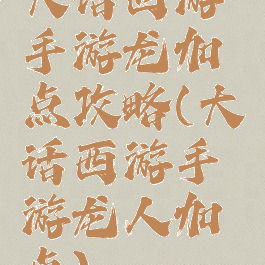 大话西游
手游龙加
点攻略(大
话西游手
游龙人加
点)